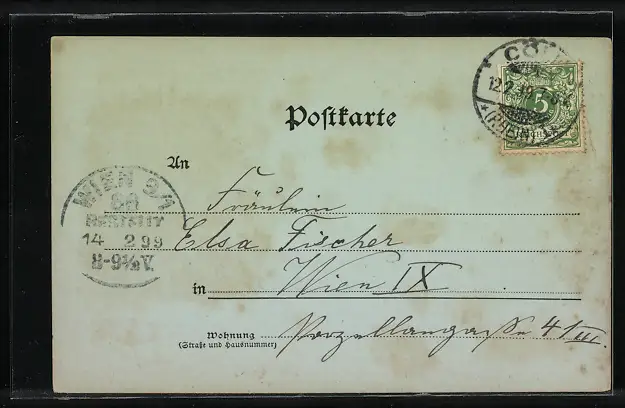 CÖLN
12.2.99.7-8N.
* (RHEIN)
5
Postkarte
An
WIEN 9/1
BESTELLT
14 2 99
8-9½V.
Fräulein
Elsa Fischer
in Wien IX
Wohnung Porzellangasse 41 III.
(Straße und Hausnummer)